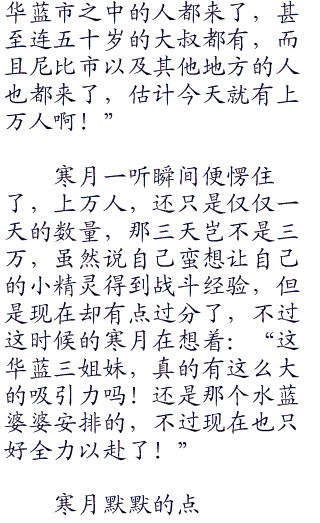 华蓝市之中的人都来了，甚
至连五十岁的大叔都有，而
且尼比市以及其他地方的人
也都来了，估计今天就有上
万人啊！”
寒月一听瞬间便愣住
了，上万人，还只是仅仅一
天的数量，那三天岂不是三
万，虽然说自己蛮想让自己
的小精灵得到战斗经验，但
是现在却有点过分了，不过
这时候的寒月在想着：“这
华蓝三姐妹，真的有这么大
的吸引力吗！还是那个水蓝
婆婆安排的，不过现在也只
好全力以赴了！”
寒月默默的点